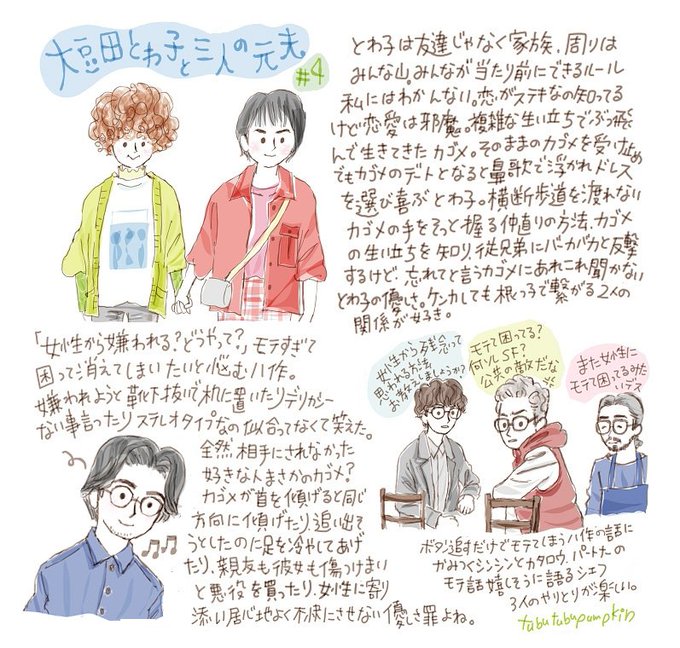 大豆田とわ子と三人の元夫
#4
とわ子は友達じゃなく家族、周りは
みんな山。みんなが当たり前にできるルール
私にはわかんない。恋がステキなの知ってる
けど恋愛は邪魔。複雑な生い立ちでぶっ飛
んで生きてきたカゴメ。そのままのカゴメを受け止め
でもカゴメのデートとなると鼻歌で浮かれドレス
を選び喜ぶとわ子。横断歩道を渡れない
カゴメの手をそっと握る仲直りの方法、カゴメ
の生い立ちを知り、従兄弟にバカバカと反撃
するけど、忘れてと言うカゴメにあれこれ聞かない
とわ子の優しさ。ケンカしても根っこで繋がる2人の
関係が好き。
「女性から嫌われる?どうやって?」モテすぎて
困って消えてしまいたいと悩む八作。
嫌われようと靴下抜いで机に置いたりデリカシー
ない事言ったりステレオタイプなの似合ってなくて笑えた。
全然相手にされなかった
好きな人まさかのカゴメ?
カゴメが首を傾げると同じ
方向に傾げたり、追い出そ
うとしたのに足を冷やしてあげ
たり、親友も彼女も傷つけまい
と悪役を買ったり、女性に寄り
添い居心地よく不快にさせない優しさ罪よね。
女性から残念って
思われる方法
お教えしましょうか?
モテて困ってる?
何ソレSF?
公共の敵だな
また女性に
モテて困ってるみた
いデス
ボタン追すだけでモテてしまう八作の話に
かみつくシンシンとカタロウ、パートナーの
モテ話嬉しそうに語るシェフ
3人のやりとりが楽しい。
tubutubupumpkin